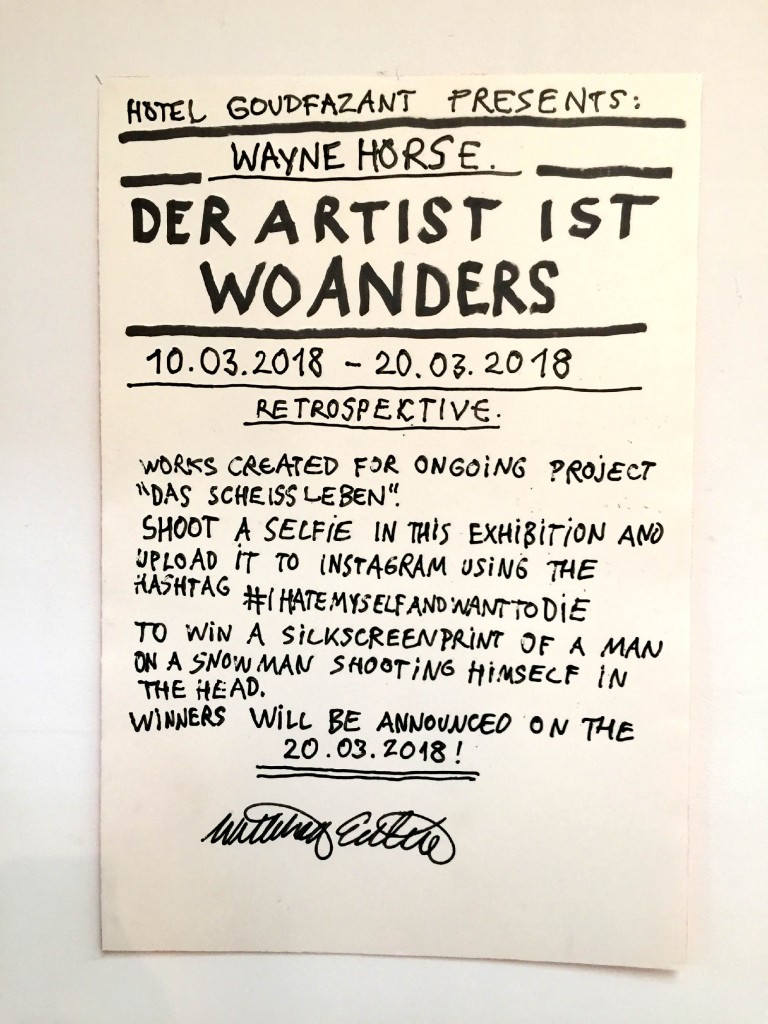 HOTEL GOUDFAZANT PRESENTS:
WAYNE HORSE.
DER ARTIST IST
WOANDERS
10.03.2018 - 20.03.2018
RETROSPEKTIVE.
WORKS CREATED FOR ONGOING PROJECT
"DAS SCHEISS LEBEN".
SHOOT A SELFIE IN THIS EXHIBITION AND
UPLOAD IT TO INSTAGRAM USING THE
HASHTAG #IHATEMYSELFANDWANTTODIE
TO WIN A SILKSCREENPRINT OF A MAN
ON A SNOWMAN SHOOTING HIMSELF IN
THE HEAD.
WINNERS WILL BE ANNOUNCED ON THE
20.03.2018!